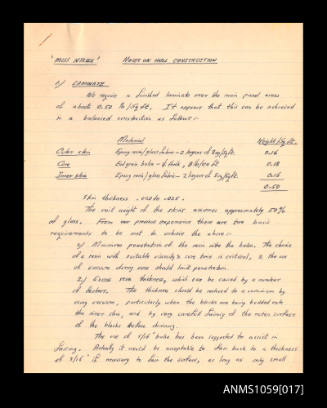 'MISS NYLEX' NOTES ON HULL CONSTRUCTION
1/ LAMINATE
We require a finished laminate over the main panel areas
of about 0.50 lb/sq ft. It appears that this can be achieved
in a balanced construction as follows:-
Material Weight/sq ft.
Outer skin Epoxy resin/glass fabric - 2 layers of oz/sq ft. 0.16
Core End grain balsa - thick, lb/cu ft 0.18
Inner skin Epoxy resin/glass fabric - 2 layers of oz/sq ft. 0.16
0.50
Skin thickness .020 to .025.
The unit weight of the skins assumes approximately 50%
of glass. From our previous experience there are two basic
requirements to be met to achieve the above:-
1/ Minimum penetration of the resin into the balsa. The choice
of a resin with suitable viscosity & cure time is critical, & the use
of vacuum during cure should limit penetration.
2/ Excess resin thickness, which can be caused by a number
of factors. The thickness should be reduced to a minimum by
using vacuum, particularly when the blocks are being bedded onto
the inner skin, and by very careful fairing of the outer surface
of the blocks before skinning.
The use of 5/16" balsa has been suggested to assist in
fairing. Actually it would be acceptable to fair back to a thickness
of 3/16" if necessary to fair the surface, as long as only small
ANMS1059[017]